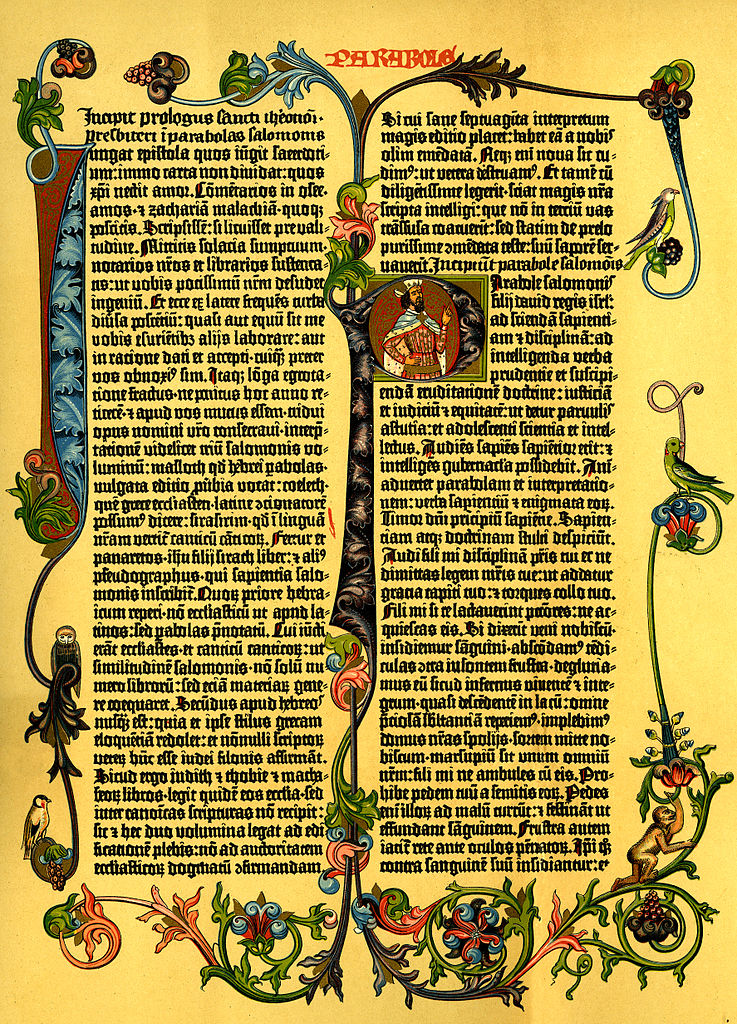 PARABOLE
Incipit prologus sancti iheronimi
presbiteri ī parabolas salomonis
Iungat epistola quos iūgit sacerdoti-
um: immo carta non diuidat: quos
xpi nectit amor. Cōmētarios in osee·
amos· ⁊ zachariā malachiā· quoqꝫ
poscitis. Scripsissē: si licuisset pre vali-
tudine. Mittitis solacia sumptuum·
notarios nr̄os et librarios sustenta-
ris: ut vobis potissimū nr̄m desudet
ingeniū. Et ecce ex latere frequēs turba
diūsa poscētiū: quasi aut equū sit me
vobis esuriētibꝫ alijs laborare: aut
in ratione dati et accepti· cuiqꝫ preter
vos obnoxiꝰ sim. Itaqꝫ lōga egrota-
tione fractus· ne penitus hoc anno re-
ticerē· ⁊ apud vos mutus essem· tridui
opus nomini vr̄o consecraui· interp̄-
tationē videlicet triū salomonis vo-
luminū: masloth qd̄ hebrei pabolas·
vulgata editio pūbia vocat: coeleth·
quē grece ecclesiasten· latine ɔcionatorē
possumꝰ dicere: sirasirim· qd̄ ī linguā
nr̄am vertit' canticū cāticoꝝ. Fertur et
panaretos· ihu filij sirach liber: ⁊ aliꝰ
pseudographus· qui sapientia salo-
monis inscribit̄. Quoꝝ priore hebra-
icum reperi· nō ecclesiasticū ut apud la-
tinos: sed pabolas p̄notatū. Cui iūcti
erāt ecclesiastes· et canticū canticoꝝ: ut
similitudinē salomonis· nō solū nu-
mero librorū: sed eciā materiaꝝ gene-
re coequaret. Secūdus apud hebreos
nusqꝫ est: quia et ipse stilus grecam
eloquētiā redolet: et nōnulli scriptoꝝ
veteꝝ hūc esse iudei filonis affirmāt.
Sicut ergo iudith ⁊ thobie ⁊ macha-
beoꝝ libros· legit quidē eos ecclesia· sed
inter canoicas scripturas nō recipit:
sic ⁊ hec duo volumina legat ad edi-
ficationē plebis: nō ad auctoritatem
ecclesiasticoꝝ dogmatū ɔfirmandam
Si cui sane septuagīta interpretum
magis editio placet: habet eā a nobis
olim emēdatā. Neqꝫ eni nova sic cu-
dimꝰ: ut vetera destruamꝰ. Et tamē cū
diligētissime legerit· sciat magis nr̄a
scripta intelligi: que nō in terciū vas
trāsfusa coacuerit: sed statim de prelo
purissime ɔmēdata teste: suū saporē ser-
vauerit. Incipiūt parabole salomōis
Parabole salomonis
filij dauid regis isrl̄:
ad sciendā sapienti-
am ⁊ disciplinā: ad
intelligenda verba
prudentie et suscipi-
endā eruditationē doctrine: iusticiā
et iudiciū ⁊ equitatē: ut detur paruulis
astutia: et adolescenti scientia et intel-
lectus. Audiēs sapiēs sapiētior erit: ⁊
intelligēs gubernacla possidebit. Ani-
aduertet parabolam et interpretatio-
nem: verba sapientiū ⁊ enigmata eoꝝ.
Timor dn̄i pricipiū sapiētie. Sapien-
ciam atqꝫ doctrinam stulti despiciūt.
Audi fili mi disciplinā pr̄is tui et ne
dimittas legem mr̄is tue: ut addatur
gracia capiti tuo: ⁊ torques collo tuo.
Fili mi si te lactauerint pctōres: ne ac-
quiescas eis. Si dixerit veni nobiscū·
insidiemur sāguini· abscōdamꝰ tēdi-
culas ɔtra insontem frustra· deglucia-
mus eū sicud infernus viuentē ⁊ inte-
grum· quasi descēdentē in lacū: omnē
pciosā sb̄stanciā repetiemꝰ· implebimꝰ
domus nr̄as spolijs· sortem mitte no-
biscum· marsupiū sit unum omniū
nr̄m: fili mi ne ambules cū eis. Pro-
hibe pedem tuū a semitis eoꝝ. Pedes
eni illoꝝ ad malū currūt: ⁊ festināt ut
effundant sāguinem. Frustra autem
iacit̄ rete ante oculos pēnatoꝝ. Ipi qꝫ
contra sanguinē suū insidiantur: et